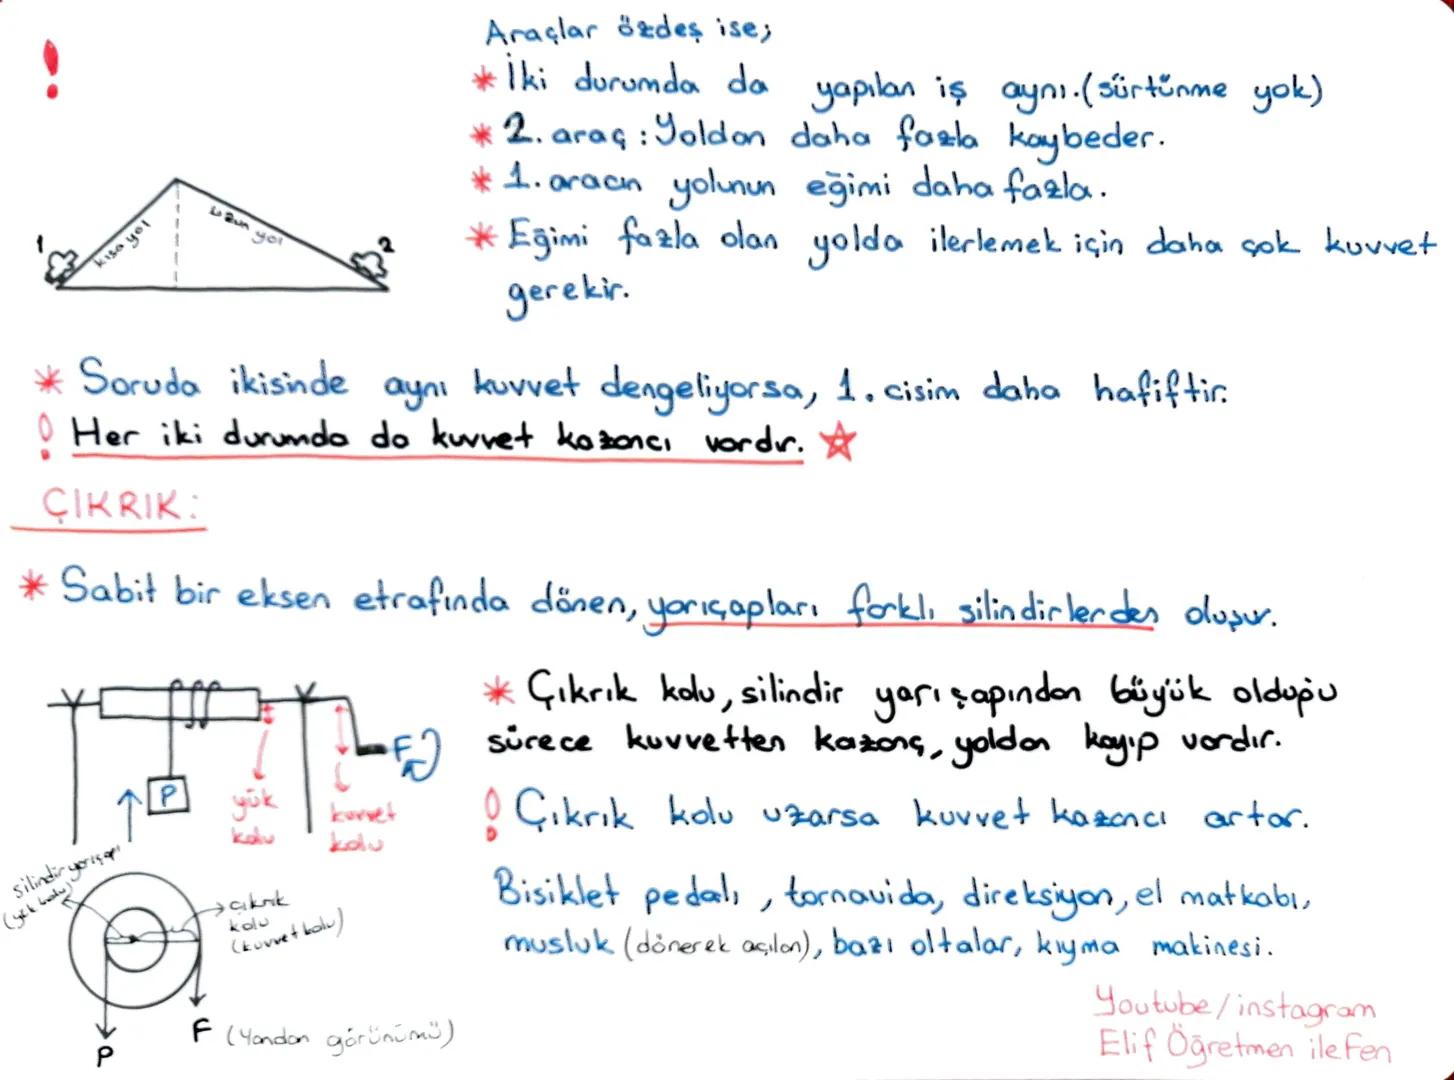 !
Araçlar özdeş ise;
* İki durumda da yapılan iş aynı.(sürtünme yok)
* 2. araç : Yoldan daha fazla kaybeder.
* 1. aracın yolunun eğimi daha fazla.
* Eğimi fazla olan yolda ilerlemek için daha çok kuvvet
gerekir.
1
kısa yol
uzun yol
2
* Soruda ikisinde aynı kuvvet dengeliyorsa, 1. cisim daha hafiftir.
! Her iki durumda da kuvvet kazancı vardır.
ÇIKRIK:
* Sabit bir eksen etrafında dönen, yarıçapları farklı silindirlerden oluşur.
* Çıkrık kolu, silindir yarıçapından büyük olduğu
sürece kuvvetten kazanç, yoldan kayıp vardır.
! Çıkrık kolu uzarsa kuvvet kazancı artar.
Bisiklet pedalı, tornavida, direksiyon, el matkabı,
musluk (dönerek açılan), bazı oltalar, kıyma makinesi.
F
P
yük
kolu
kuvvet
kolu
silindir yarıçapı
(yük kolu)
çıkrık
kolu
(kuvvet kolu)
P
F (Yandan görünümü)
Youtube/instagram
Elif Öğretmen ile Fen